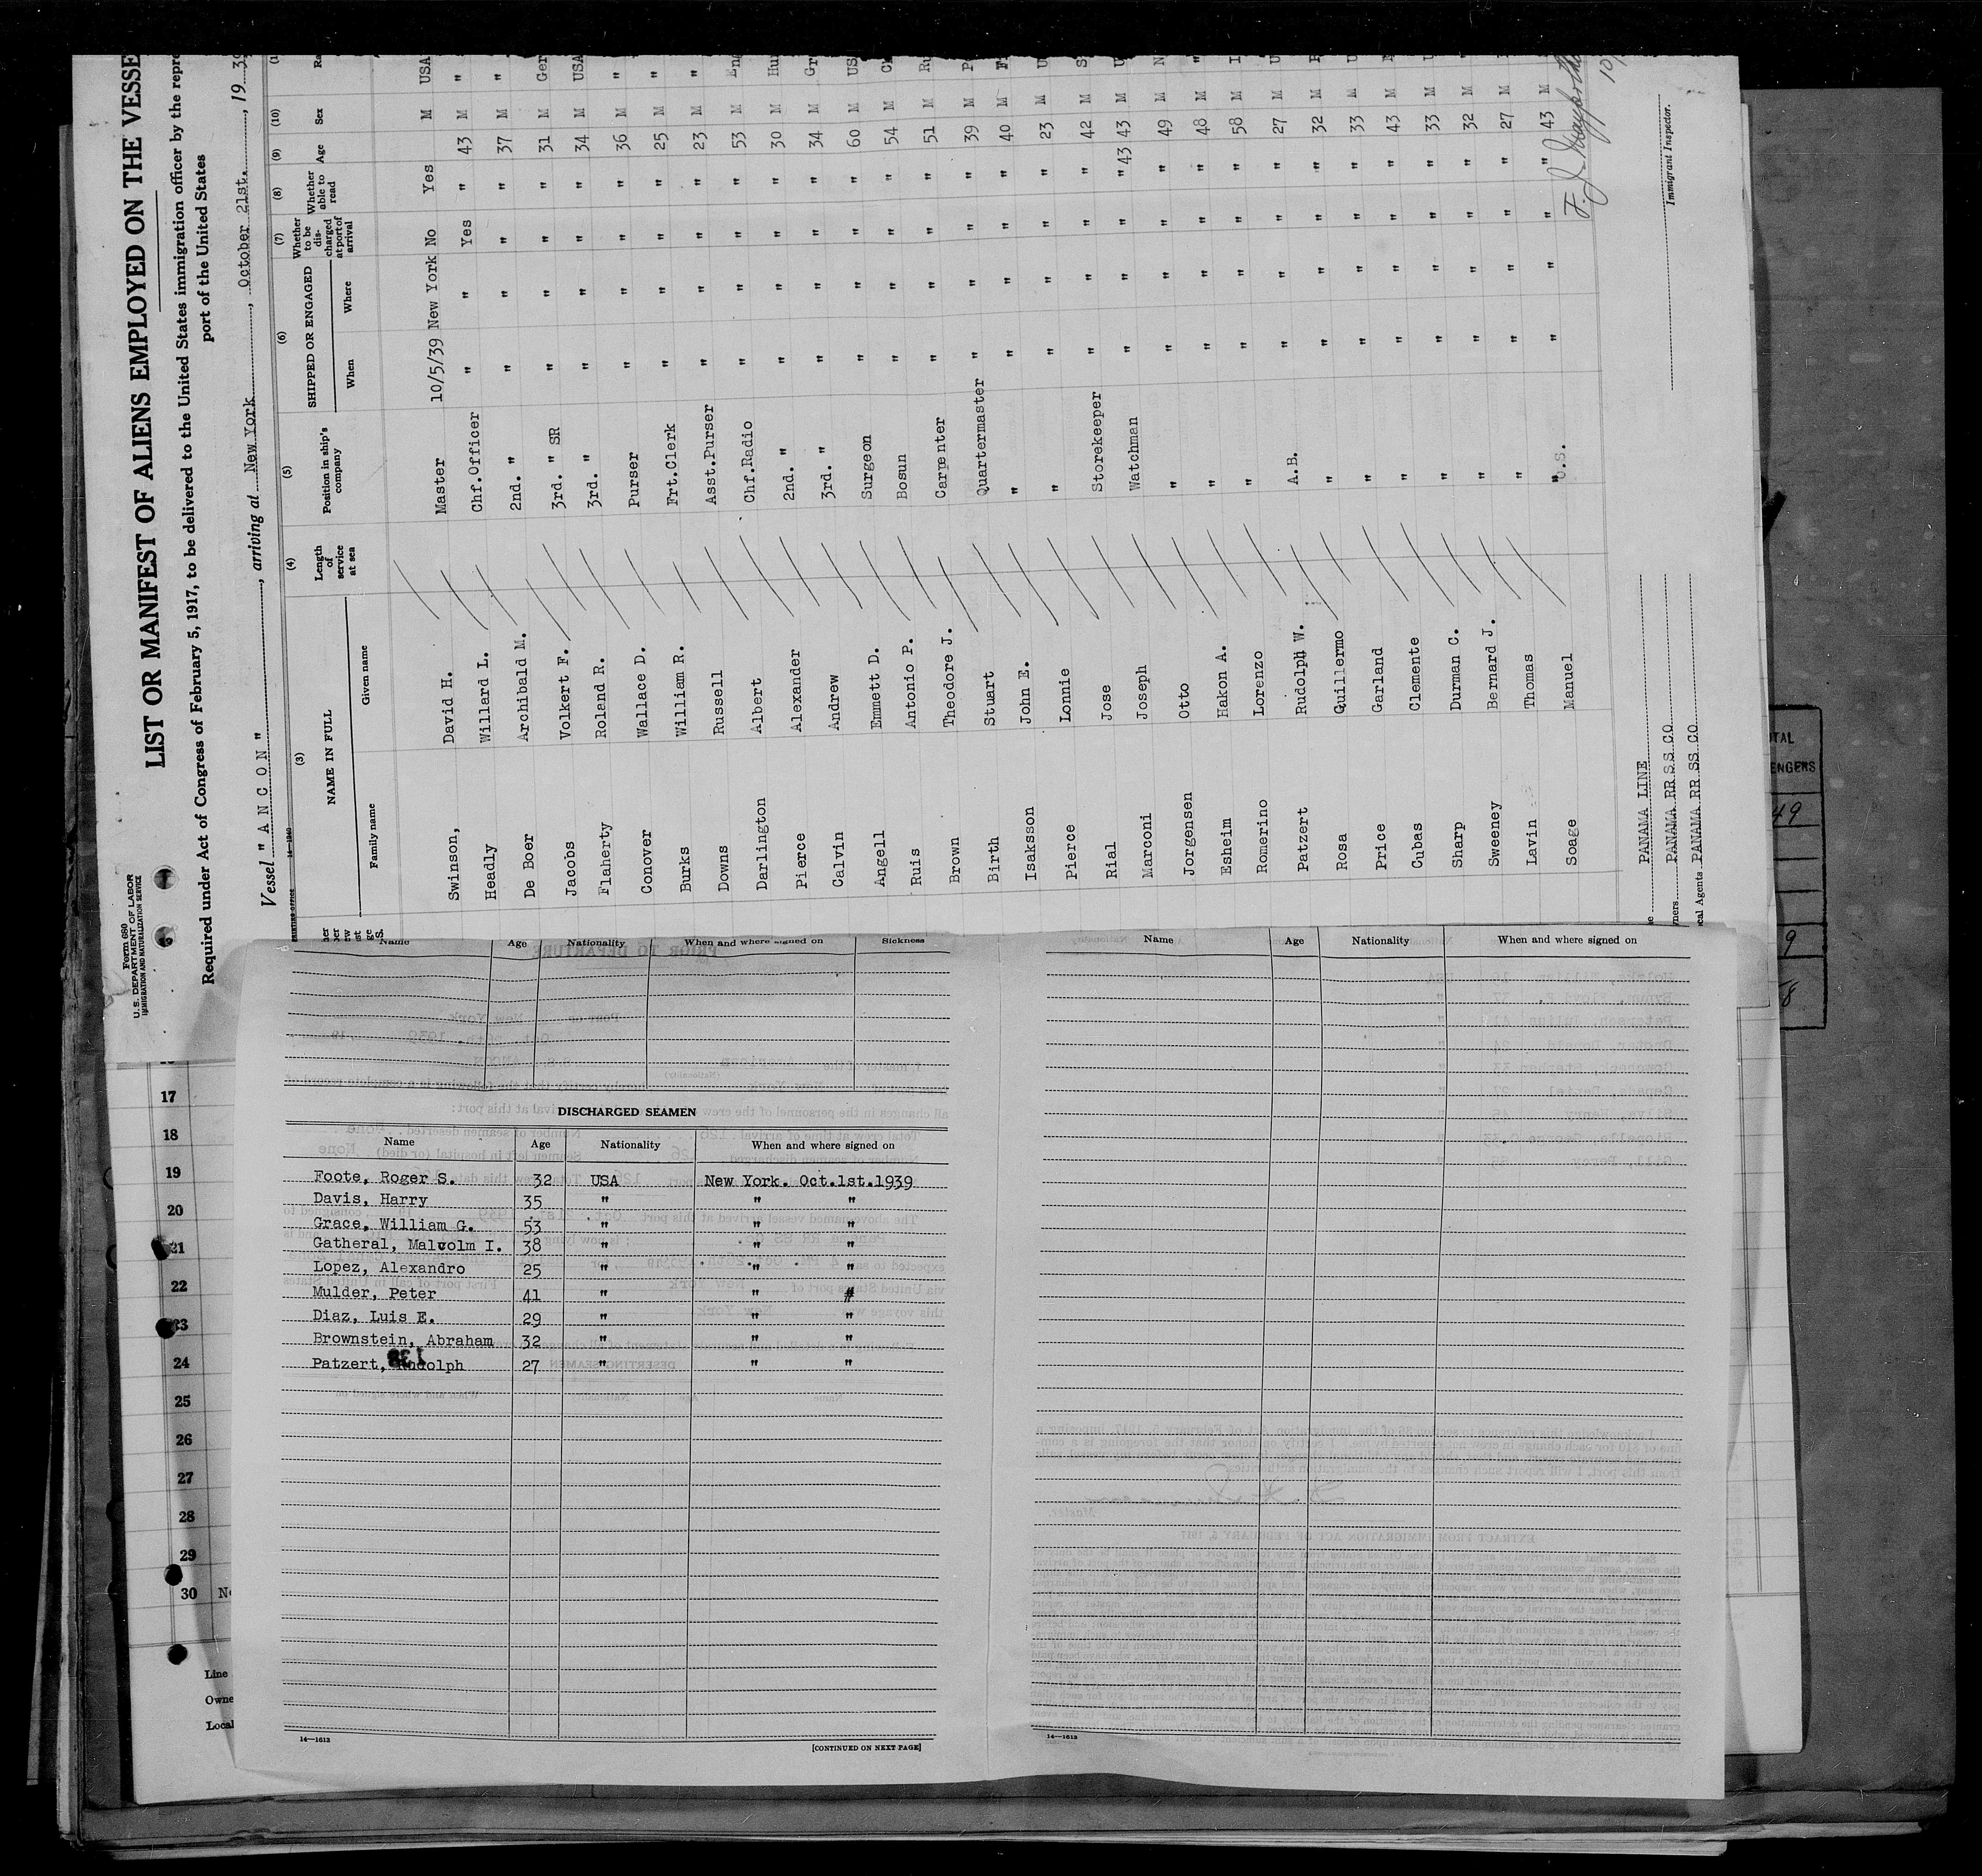 Form 680
U. S. DEPARTMENT OF LABOR
IMMIGRATION AND NATURALIZATION SERVICE
LIST OR MANIFEST OF ALIENS EMPLOYED ON THE VESSE
Required under Act of Congress of February 5, 1917, to be delivered to the United States immigration officer by the repre
port of the United States
Vessel " A N C O N ", arriving at New York, October 21st., 19 39
(3) (4) (5) (6) (7) (8) (9) (10)
NAME IN FULL Length of service at sea Position in ship's company SHIPPED OR ENGAGED Whether to be discharged at port of arrival Whether able to read Age Sex Ra
Family name Given name When Where
Swinson, David H. Master 10/5/39 New York No Yes M USA
Headly Willard L. Chf.Officer " " Yes " 43 M "
De Boer Archibald M. 2nd. " " " " " 37 M "
Jacobs Volkert F. 3rd. " SR " " " " 31 M Ger
Flaherty Roland R. 3rd. " " " " " 34 M USA
Conover Wallace D. Purser " " " " 36 M "
Burks William R. Frt.Clerk " " " " 25 M "
Downs Russell Asst.Purser " " " " 23 M "
Darlington Albert Chf.Radio " " " " 53 M En
Pierce Alexander 2nd. " " " " " 30 M Hu
Calvin Andrew 3rd. " " " " " 34 M Gr
Angell Emmett D. Surgeon " " " " 60 M US
Ruis Antonio P. Bosun " " " " 54 M
Brown Theodore J. Carpenter " " " " 51 M Ru
Birth Stuart Quartermaster " " " " 39 M
Isaksson John E. " " " " " 40 M
Pierce Lonnie " " " " " 23 M U
Rial Jose Storekeeper " " " " 42 M S
Marconi Joseph Watchman " " " "43 43 M
Jorgensen Otto " " " " " 49 M N
Esheim Hakon A. " " " " " 48 M "
Romerino Lorenzo " " " " " 58 M I
Patzert Rudolph W. A.B. " " " " 27 M U
Rosa Quillermo " " " " " 32 M
Price Garland " " " " " 33 M U
Cubas Clemente " " " " " 43 M
Sharp Durman C. " " " " " 33 M U
Sweeney Bernard J. " " " " " 32 M "
Lavin Thomas " " " " " 27 M
Soage Manuel O.S. " " " " 43 M
Immigrant Inspector.
PANAMA LINE
PANAMA RR S.S.CO
cal Agents PANAMA RR SS CO
TAL
ENGERS
49
9
17
18
19
20
21
22
23
24
25
26
27
28
29
30 N
Line
Owne
Local
Name Age Nationality When and where signed on Sickness
DISCHARGED SEAMEN
Name Age Nationality When and where signed on
Foote, Roger S. 32 USA New York. Oct.1st.1939
Davis, Harry 35 " " "
Grace, William G. 53 " " "
Gatheral, Malcolm I. 38 " " "
Lopez, Alexandro 25 " " "
Mulder, Peter 41 " " #
Diaz, Luis E. 29 " " "
Brownstein, Abraham 32 " " "
Patzert, Rudolph 27 " " "
14—1613
[CONTINUED ON NEXT PAGE]
Name Age Nationality When and where signed on
14—1613